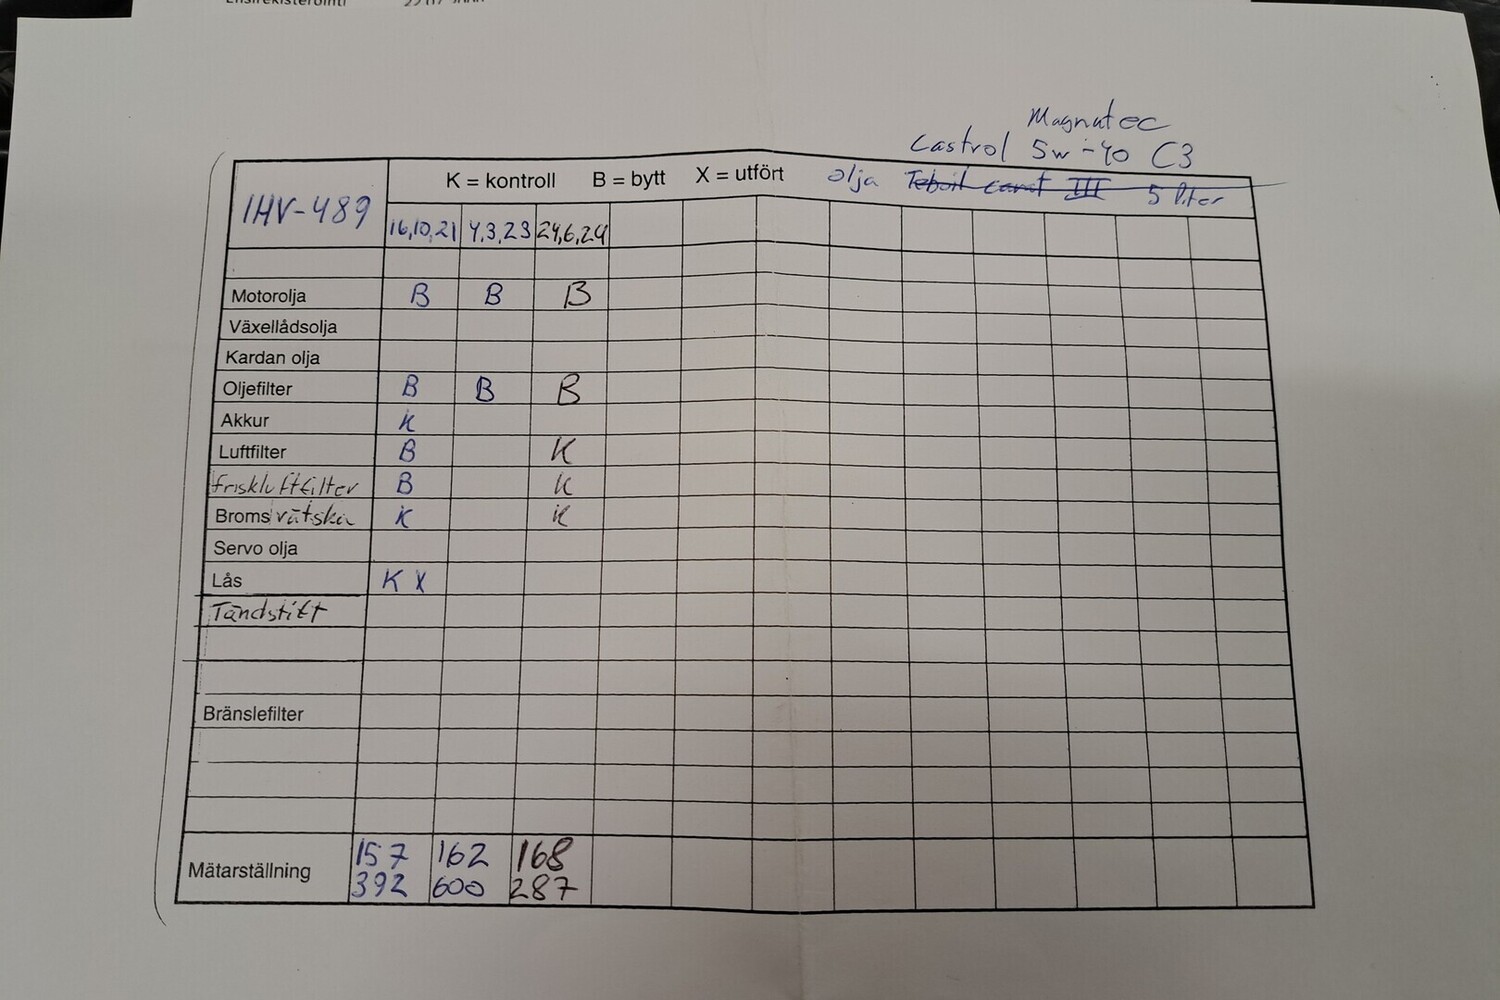 Magnatec
Castrol 5w-40 C3
K = kontroll B = bytt X = utfört olja Teboil III 5 liter
IHV-489
16,10,21 4,3,23 24,6,24
Motorolja B B B
Växellådsolja
Kardan olja
Oljefilter B B B
Akkur K
Luftfilter B K
friskluftfilter B K
Bromsvätska K K
Servo olja
Lås K X
Tändstift
Bränslefilter
Mätarställning 157 392 162 600 168 287